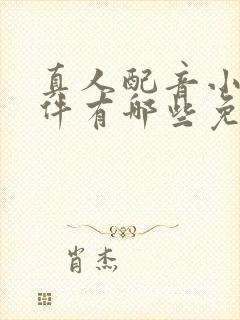 真人配音小
件有哪些免
肖杰